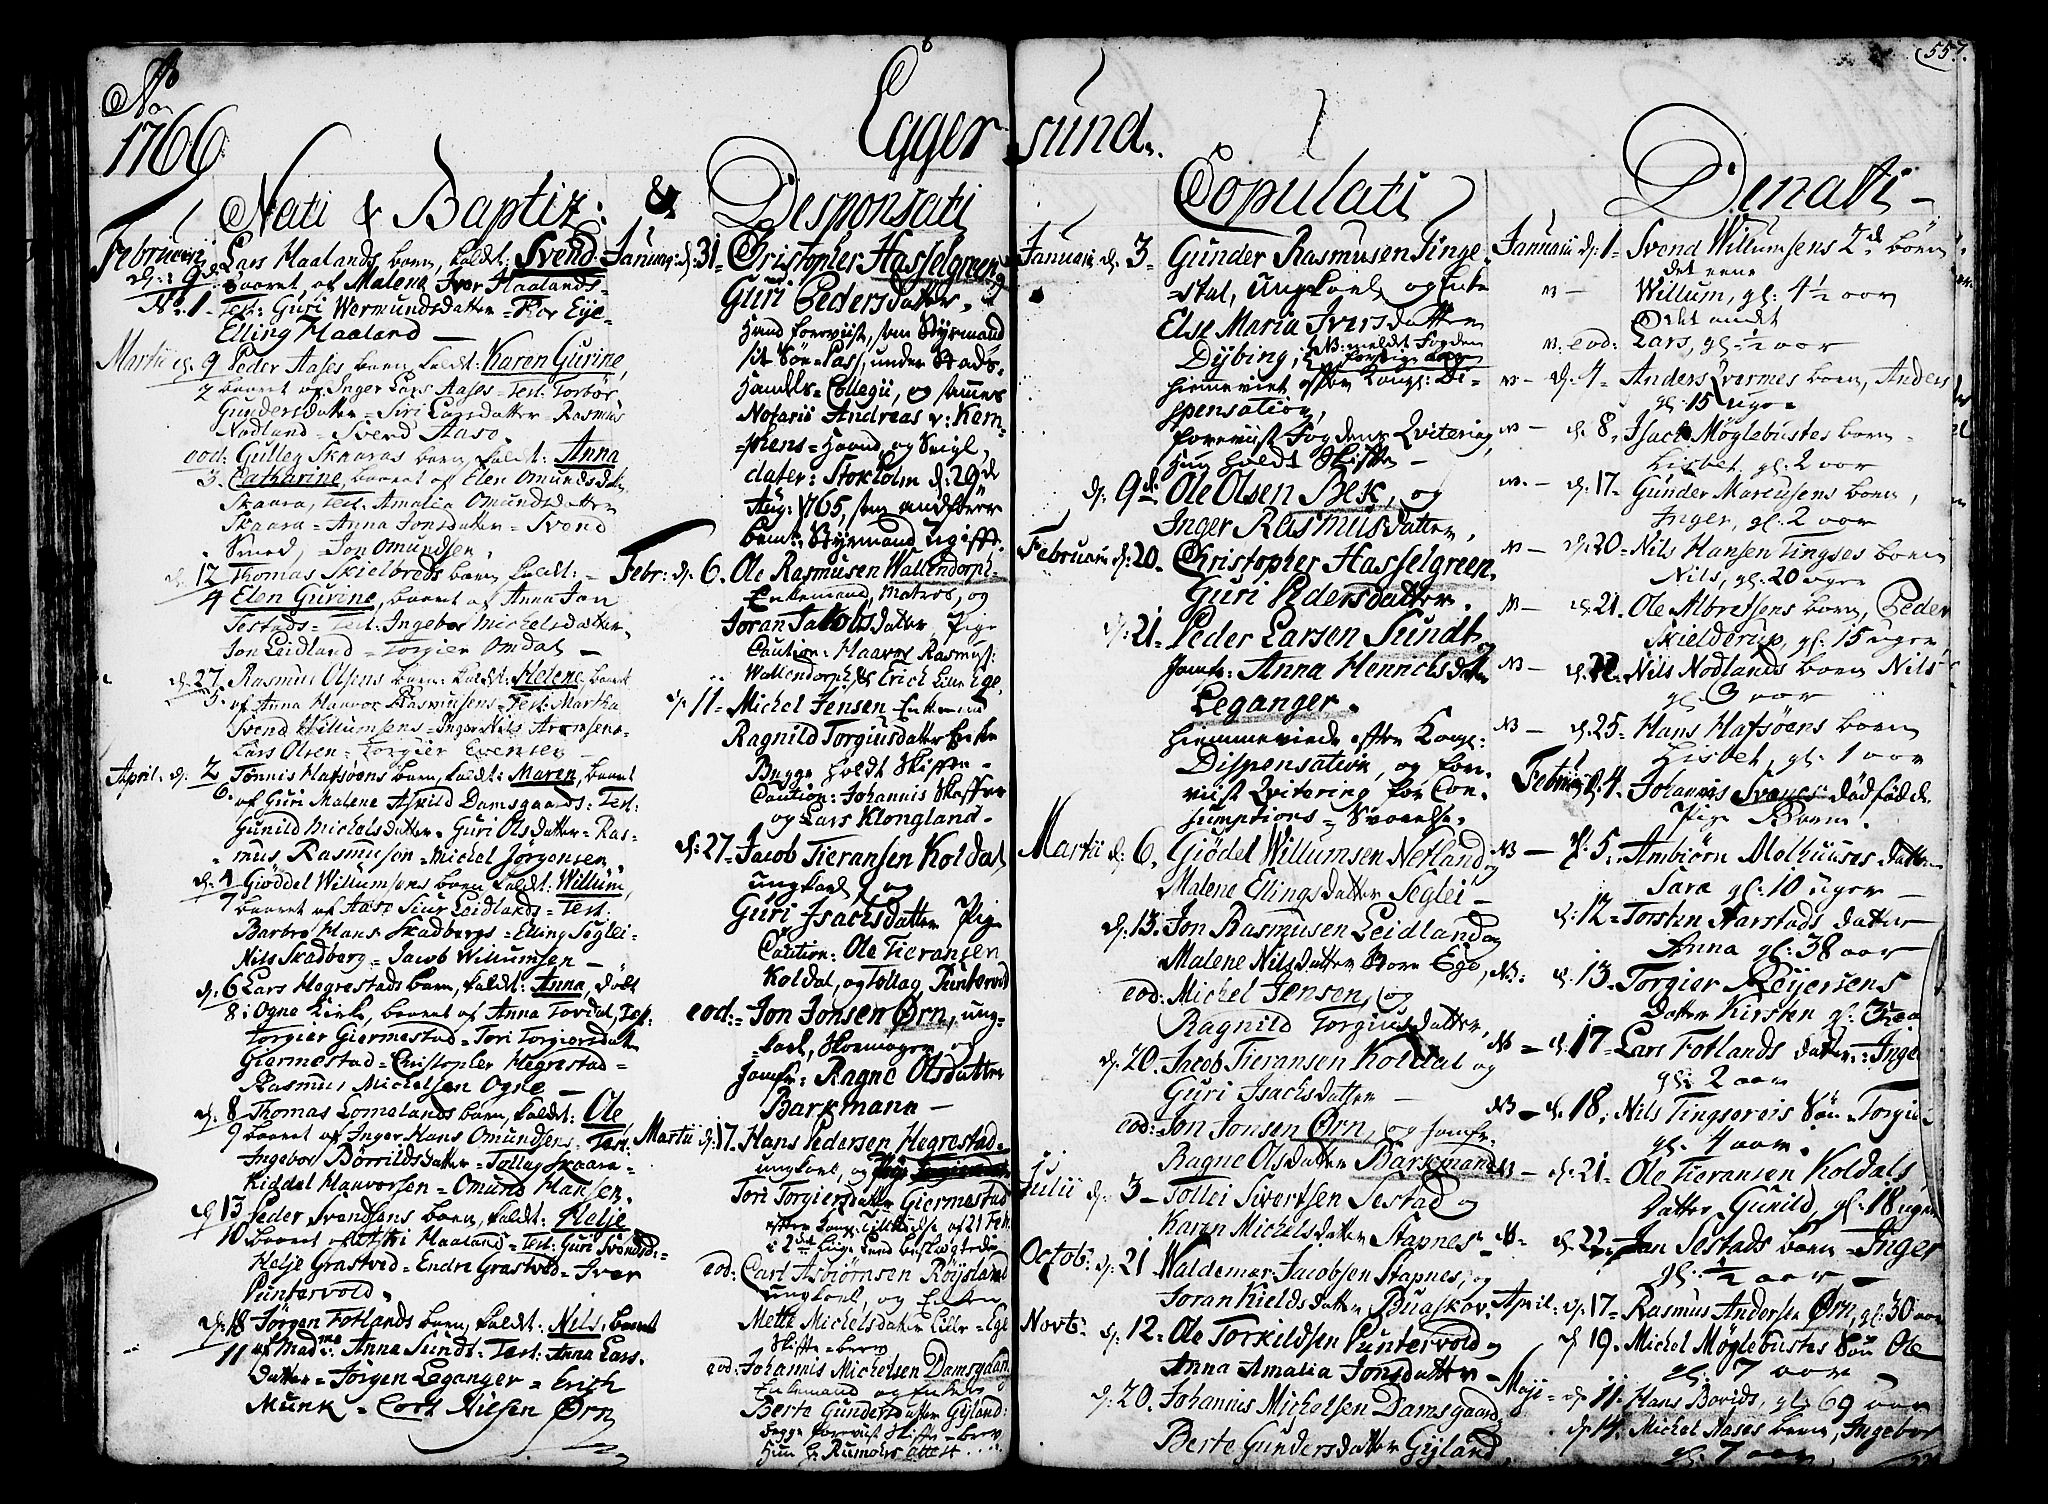 Ao
1766
Egger sund.
557.
Nati & Baptiz: &
Februarii Lars Haalands barn, kaldt: Svend
d: 9de baaret af Malene Iver Haalands=
No. 1 - Test: Guri Wermundsdatter = Roer Eye=
Elling Haaland —
Martii d: 9 Peder Aases barn kaldt: Karen Gurine,
2 baaret af Inger Lars Aases = Test: Torbor
Gundersdatter = Siri Larsdatter = Rasmus
Nodland = Svend Aase.
eod: Gulleg Skaaras barn kaldt: Anna
3. Catharine, baaret af Elen Omundsdatter
Skaara, Test: Amalia Omundsdatter
Skaara = Anna Jonsdatter = Svend
Smed, = Jon Omundsen.
d. 12 Thomas Skielbreds barn kaldt: =
4 Elen Gurine, baaret af Anna Jan
Testads = Test: Ingebor Michelsdatter,
Jon Leidland = Torgier Omdal —
d. 27. Rasmus Olsens barn: kaldt: Helene, baaret
5. af Anna Haavor Rasmusens = Test: Martha
Svend Willumsens = Inger Nils Aronsens =
Lars Olsen = Torgier Evensen —
April. d. 2 Tønnis Hafsøens barn, kaldt: Maren, baaret
6. af Guri Malene Askild Damsgaards: Test:
Gunild Michelsdatter = Guri Olsdatter = Ras=
mus Rasmusen = Michel Jørgensen.
d. 4 Giøddel Willumsens barn kaldt: Willum,
7 baaret af Aase Siur Leidlands = Test:
Barbro Hans Skadbergs = Elling Seglei =
Nils Skadberg = Jacob Willumsen —
d. 6 Lars Hegrestads barn, kaldt: Anna, døbt
8 i Ogne Kirke, baaret af Anna Tordal, Test:
Torgier Giermestad = Tori Torgiersdatter
Giermestad = Christopher Hegrestad =
Rasmus Michelsen Ogne —
d. 8 Thomas Lomelands barn, kaldt: Ole
9 baaret af Inger Hans Omundsens = Test:
Ingebor Børrildsdatter = Tollag Skaara =
Kiddel Haavorsen = Omund Hansen.
d 13 Peder Svendsens barn, kaldt: Helje
10 baaret af Haaland = Test: Guri Svendsd: =
Helje Grastved = Endre Grastved = Iver
Puntervold.
d. 18 Jørgen Fotlands barn, kaldt: Nils, baaret
11 af Madme Anna Sundt = Test: Anna Lars=
datter = Jørgen Leganger = Erich
Munk = Cort Nilsen Ørn
Desponsati
Januar: d: 31 - Christopher Hasselgreen, og
Guri Pedersdatter.
Hand foreviist, som Styrmand
sit Søe-Pass, under Stads
Handels-Collegii, og sammes
Notarii Andreas v: Kem=
=pens = Haand og Seigl,
dater: Stokholm d: 29de
Aug: 1765, som andfører
bemte: Styrmand ugift.
Febr: d. 6. Ole Rasmusen Wallendorph =
Enkemand, Matros, og
Joran Jacobsdatter Pige
Caution: Haavor Rasmus:
Wallendorph, & Erich Lille Ege.
d. 11 - Michel Jensen Enkemand
Ragnild Torgiusdatter Enke
Begge holdt Skifte -
Caution: Johannis Skeffer
og Lars Klongland -
d. 27. Jacob Tieransen Koldal
ungkarl, og
Guri Isachsdatter Pige
Caution: Ole Tieransen
Koldal, og Tollag Puntervold
eod: = Jon Jonsen Ørn, ung=
=karl, Skoemager og
Jomfr: Ragne Olsdatter
Barkmann —
Martii d: 17. Hans Pedersen Hegrestad =
ungkarl, og
Tori Torgiersdatter Giermestad
efter Kong: Tilladelse af 21 Feb.
i 2det Liige Leed beslægtede
eod: Carl Asbiørnsen Røysland
ungkarl, og Enken
Mette Michelsdatter Lille = Ege
Skifte = brev
eod: Johannis Michelsen Damsgaard
Enkemand og Enken
Berte Gundersdatter Gyland:
Begge foreviist Skifte = brev
Hun H: Rumohrs attest
Copulati
Januarii d. 3 - Gunder Rasmusen Tinge=
=stal, Ungkarl, og Enke
Else Maria Iversdatter
Dybing, NB: meldt Fogden
hiemmeviet efter Kong: Di=
spensation,
foreviist Fogdens Qvitering,
Hun holdt Skifte —
d. 9d. Ole Olsen Bek, og
Inger Rasmusdatter,
Februarii d: 20 - Christopher Hasselgreen.
Guri Pedersdatter.
d: 21 - Peder Larsen Sundt
Jomfr: Anna Henrichsdatter
Leganger.
hiemmeviede efter Kong:
Dispensation, og fore=
viist Qvitering for Con=
sumptions = Svarelse.
Martii d. 6. Giødel Willumsen Netland og
Malene Ellingsdatter Seglei —
d. 13. Jon Rasmusen Leidland og
Malene Nilsdatter Store Ege,
eod: Michel Jensen, og
Ragnild Torgiusdatter,
d. 20. Jacob Tieransen Koldal og
Guri Isachsdatter —
eod: = Jon Jonsen Ørn, og Jomfr:
Ragne Olsdatter Barkmand
Julii d. 3 - Tollei Sivertsen Sestad og
Karen Michelsdatter Stapnes =
Octob: d. 21 Waldemar Jacobsen Stapnes, og
Joran Kieldsdatter Buaskov.
Novb: d. 12 = Ole Torkildsen Puntervold og
Anna Amalia Jonsdatter —
d. 20. Johannis Michelsen Damsgaard
Berte Gundersdatter Gyland,
Denati —
Januarii d. 1 - Svend Willumsens 2de børn
det eene
Willum, gl: 4½ aar
Det andet
eod: Lars, gl: ½ aar
d. 4 - Anders Qvermes barn, Anders
gl: 15 uger
d. 8, Isach Møglebustes barn =
Lisbet, gl. 2 aar
d. 17 - Gunder Marcusens barn,
Inger, gl: 2 aar
d. 20 - Nils Hansen Tingses barn
Nils, gl: 20 uger
NB — d. 21. Ole Albretsens barn, Peder
Skielderup, gl: 15 uger,
NB — d. 22. Nils Nodlands barn Nils
gl: 3 aar
NB — d. 25 - Hans Hafsøens barn
Lisbet, gl. 1 aar
Februarii d. 4. Johannis Svanes dødfødde
Pige Barn.
NB — d. 5 - Ambiørn Molhuuses datter
Sara gl: 10 uger —
d: 12 - Torsten Aarstads datter
Anna gl: 38 aar
NB: d. 13 - Torgier Reijersens
datter Kirsten gl: 3½ aar
NB = d. 17 - Lars Fotlands datter: Inge
gl: 2 aar
NB = d. 18. Nils Tingsereis Søn Torgie
gl. 4 aar.
NB — d. 21 - Ole Tieransen Koldals
datter Gunild, gl. 18 uger
NB - d. 22 - Jan Sestads barn - Inger
gl: ½ aar —
April: d. 17 - Rasmus Andersen Ørn, gl: 30 aar
d. 19. Michel Møglebustes Søn Ole
gl: 7 aar —
Maji = d. 11 - Hans Bovids, gl. 69 aar
d. 14. Michel Aases barn, Ingebor
gl. 7 aar,